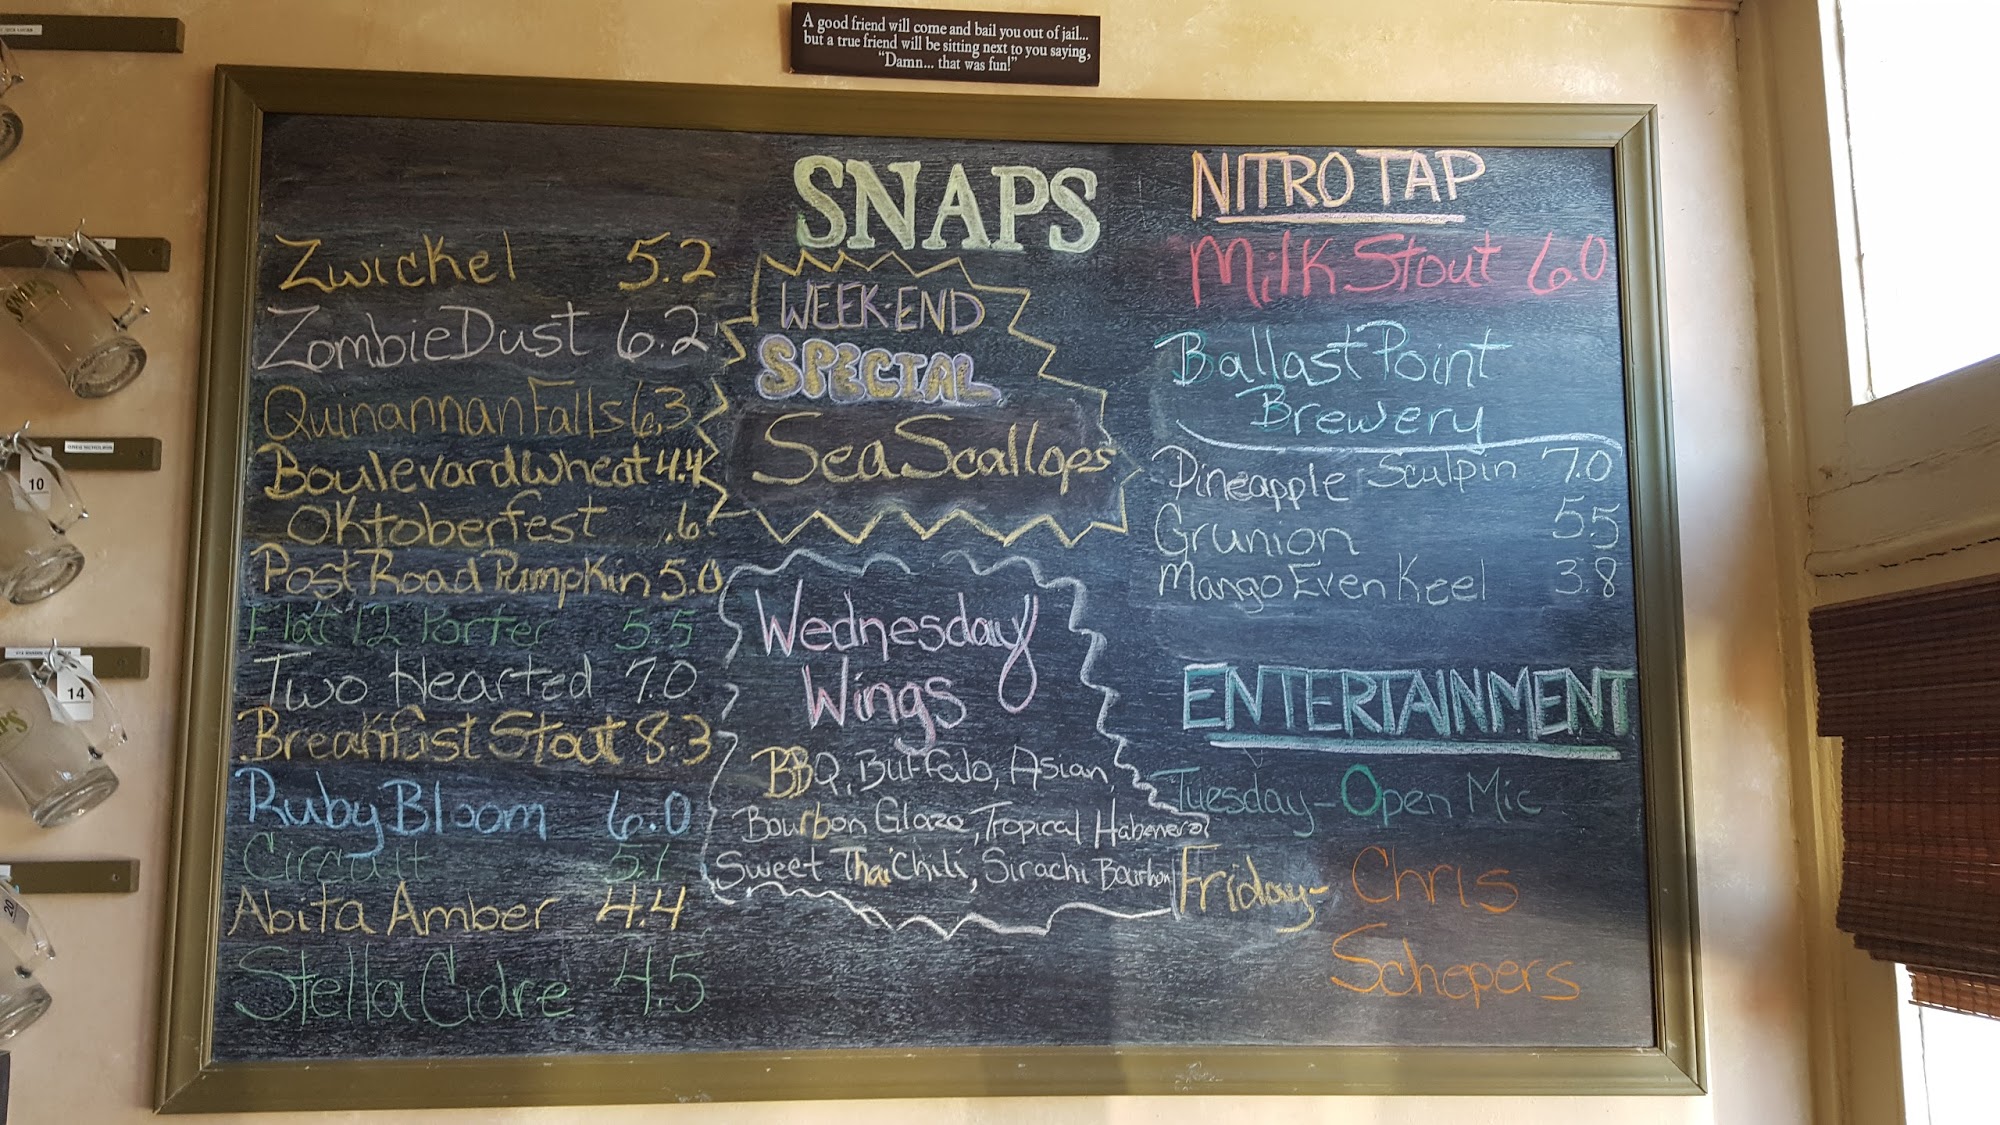 A good friend will come and bail you out of jail...
but a true friend will be sitting next to you saying,
"Damn... that was fun!"
SNAPS
Zwickel 5.2
ZombieDust 6.2
QuinannanFalls 6.3
BoulevardWheat 4.4
Oktoberfest .6
Post Road Pumpkin 5.0
Flat 12 Porter 5.5
Two Hearted 7.0
Breakfast Stout 8.3
Ruby Bloom 6.0
Circuit 5.1
Abita Amber 4.4
Stella Cidre 4.5
WEEK-END
SPECIAL
Sea Scallops
Wednesday
Wings
BBQ, Buffalo, Asian,
Bourbon Glaze, Tropical Habenero,
Sweet Thai Chili, Sirachi Bourbon
NITRO TAP
Milk Stout 6.0
Ballast Point
Brewery
Pineapple Sculpin 7.0
Grunion 5.5
Mango Even Keel 3.8
ENTERTAINMENT
Tuesday - Open Mic
Friday - Chris
Schepers
SNAPS
10
14
20